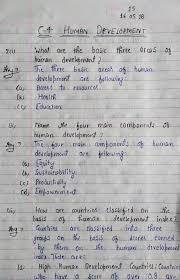 25
16 05 18
C-4 HUMAN DEVELOPMENT
Q(i) What are the basic three areas of
human development?
Ans The three basic areas of human
development are following
(a) Access to resources
(b) Health
(c) Education
Q. Name the four main components of
human development?
Ans The four main components of human
development are following.
(a) Equity
(b) Sustainability
(c) Productivity
(d) Empowerment
How are countries classified on the
basis of human development index?
Ans Countries are classified into three
groups on the basis of scores earned
by them on the human development
index. These are
High Human Development Countries: Countries
who have a score of over 0.8 are